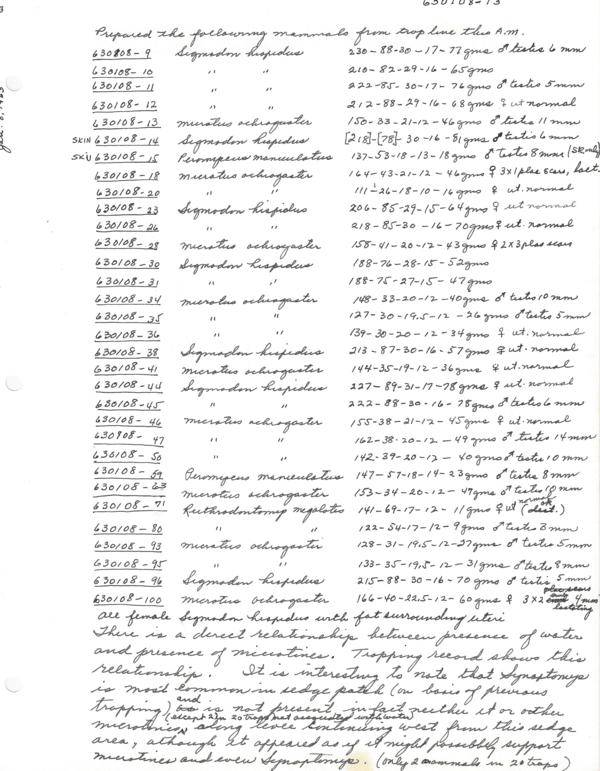 630108-13
Jan. 8, 1963
Prepared the following mammals from trap line this A.M.
630108-9 Sigmodon hispidus 230-88-30-17-77gms ♂ testis 6 mm
630108-10 " " 210-82-29-16-65gms
630108-11 " " 222-85-30-17-76gms ♂ testis 5mm
630108-12 " " 212-88-29-16-68gms ♀ ut normal
630108-13 Microtus ochrogaster 150-33-21-12-46gms ♂ testis 11 mm
SKIN 630108-14 Sigmodon hispidus [218]-[78]-30-16-81gms ♂ testis 6mm
SKIN 630108-15 Peromyscus maniculatus 137-53-18-13-18gms ♂ testes 8mm (SK only)
630108-18 Microtus ochrogaster 164-43-21-12-46gms ♀ 3x1 plac scars, lact.
630108-20 " " 111-26-18-10-16gms ♀ ut. normal
630108-23 Sigmodon hispidus 206-85-29-15-64gms ♀ ut normal
630108-26 " " 218-85-30-16-70gms ♀ ut. normal
630108-28 Microtus ochrogaster 158-41-20-12-43gms ♀ 2x3 plac scars
630108-30 Sigmodon hispidus 188-76-28-15-52gms
630108-31 " " 188-75-27-15-47gms
630108-34 Microtus ochrogaster 148-33-20-12-40gms ♂ testis 10 mm
630108-35 " " 127-30-19.5-12-26gms ♂ testis 5mm
630108-36 " " 139-30-20-12-34gms ♀ ut. normal
630108-38 Sigmodon hispidus 213-87-30-16-57gms ♀ ut. normal
630108-41 Microtus ochrogaster 144-35-19-12-36gms ♀ ut. normal
630108-44 Sigmodon hispidus 227-89-31-17-78gms ♀ ut. normal
630108-45 " " 222-88-30-16-78gms ♂ testis 6 mm
630108-46 Microtus ochrogaster 155-38-21-12-45gms ♀ ut. normal
630108-47 " " 162-38-20-12-49gms ♂ testes 14mm
630108-50 " " 142-39-20-12-40gms ♂ testis 10 mm
630108-59 Peromyscus maniculatus 147-57-18-14-23gms ♂ testes 8mm
630108-63 Microtus ochrogaster 153-34-20-12-47gms ♂ testis 10 mm
630108-71 Reithrodontomys megalotis 141-69-17-12-11gms ♀ ut normal
630108-80 " " 122-54-17-12-9gms ♂ testis 3mm
630108-93 Microtus ochrogaster 128-31-19.5-12-27gms ♂ testis 5mm
630108-95 " " 133-35-19.5-12-31gms ♂ testis 8mm
630108-96 Sigmodon hispidus 215-88-30-16-70gms ♂ testis 5mm
630108-100 Microtus ochrogaster 166-40-22.5-12-60gms ♀ 3x2 plac scars 4mm lactating
All female Sigmodon hispidus with fat surrounding uteri
There is a direct relationship between presence of water
and presence of microtines. Trapping record shows this
relationship. It is interesting to note that Synaptomys
is most common in sedge patch (on basis of previous
trapping) and is not present, in fact neither it or other
(except 2) in 20 traps not associated with water
microtines along levee continuing west from this sedge
area, although it appeared as if it might possibly support
microtines and even Synaptomys. (only 2 mammals in 20 traps)